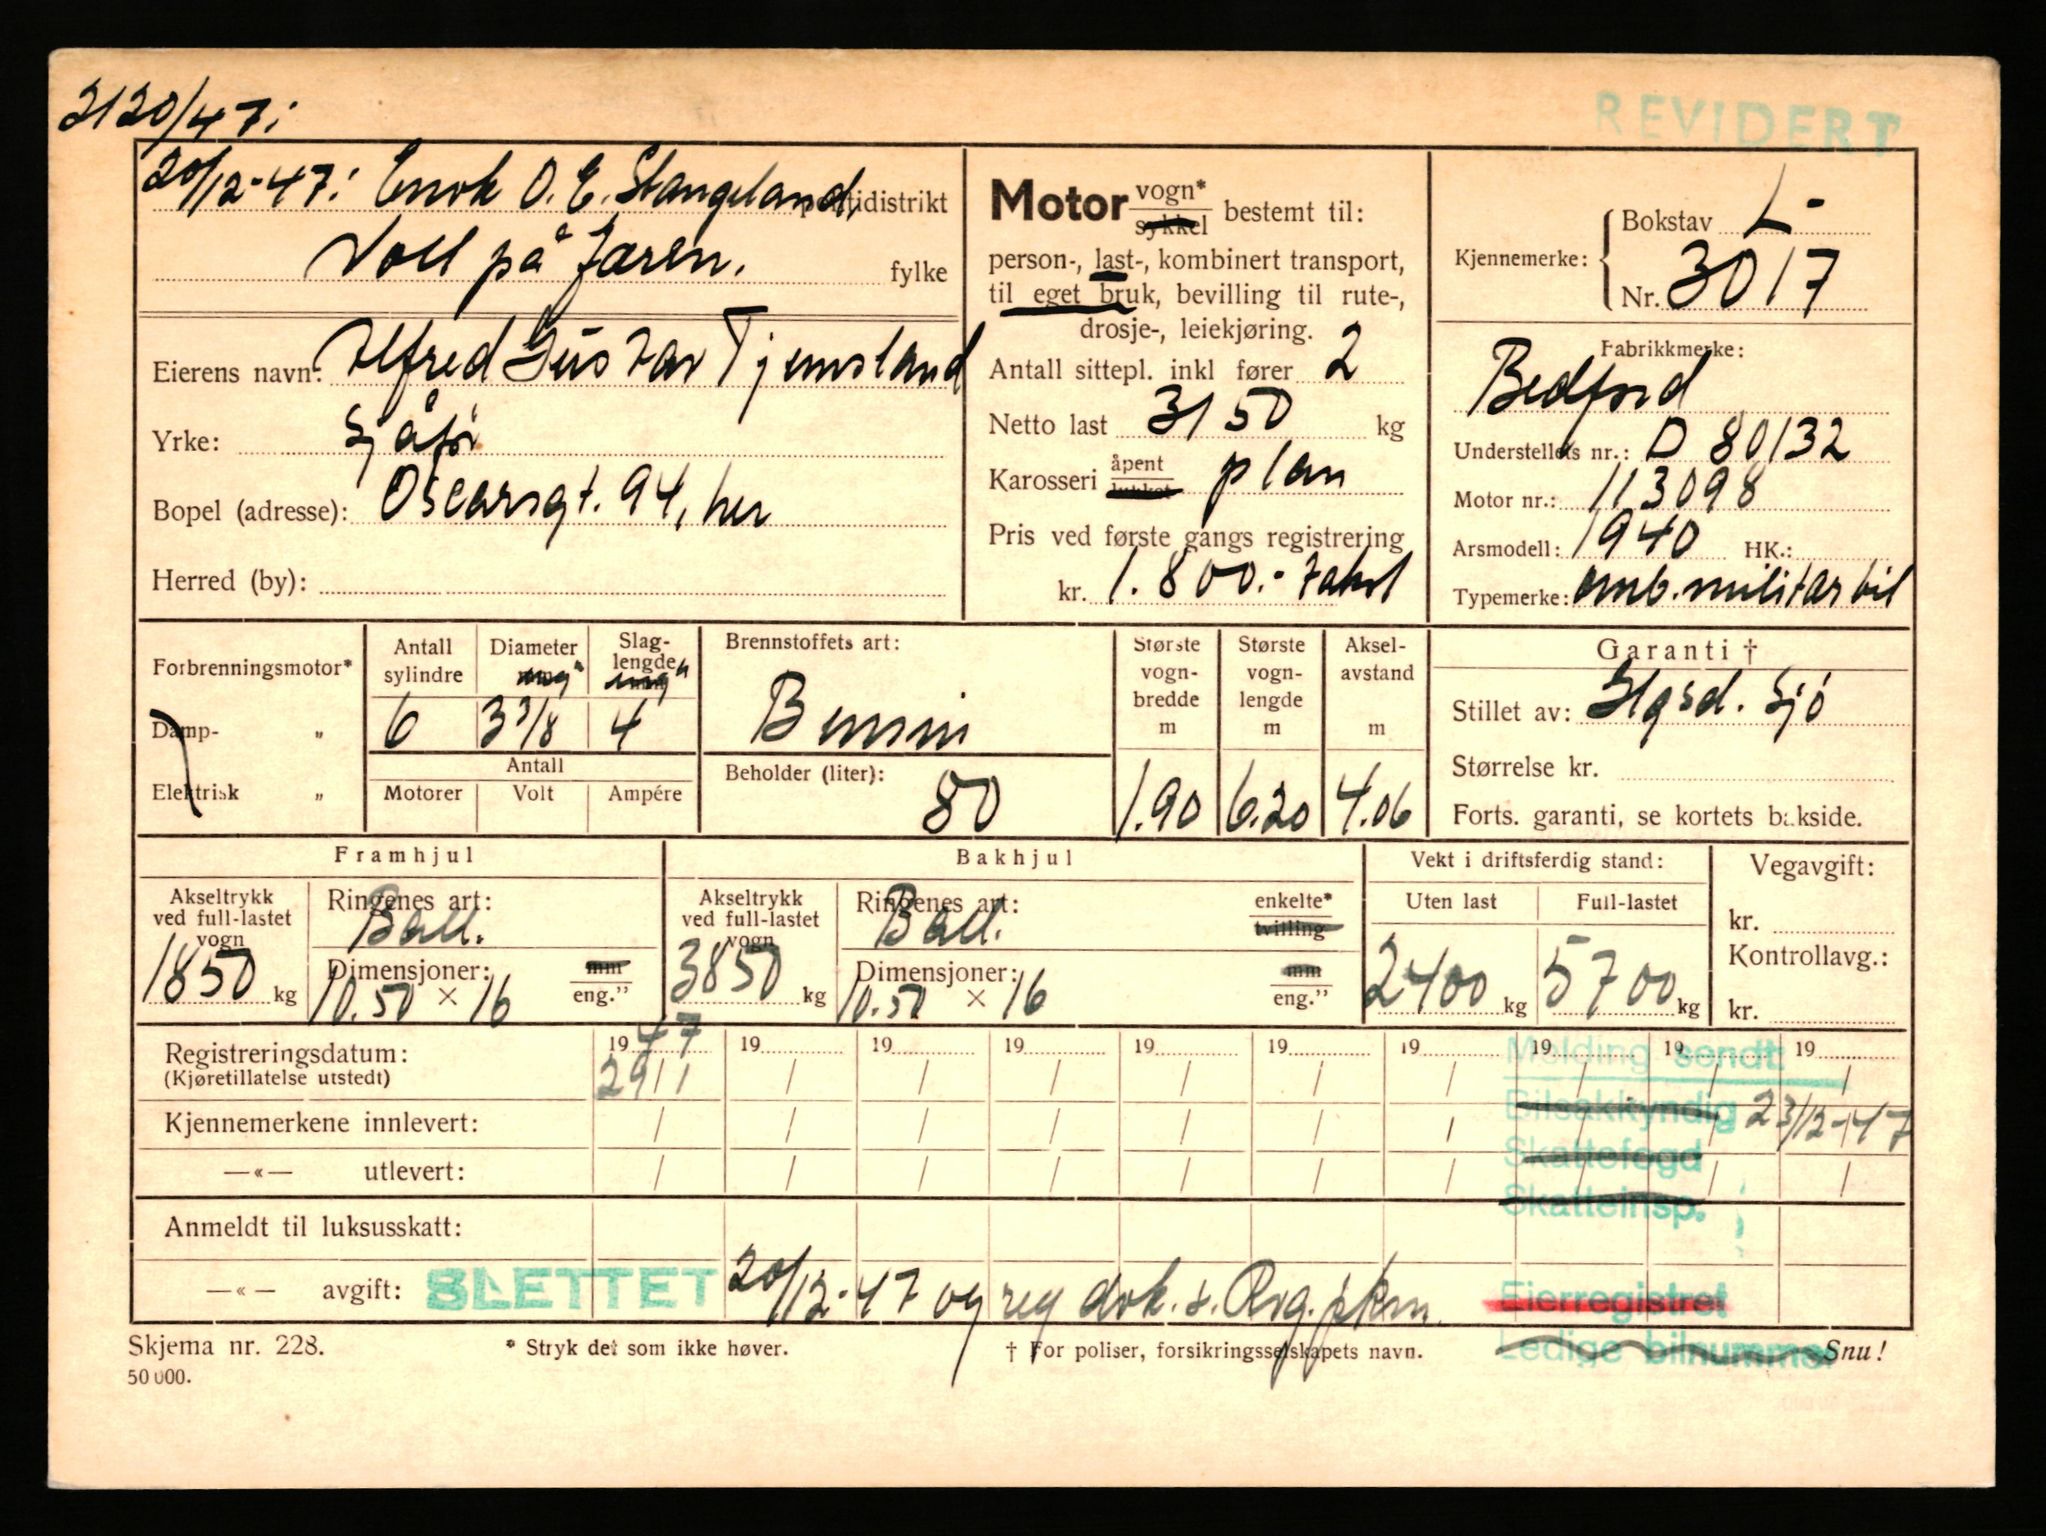 2120/47:
REVIDERT
20/12-47: Enok O. E. Stangeland, politidistrikt
Voll på Jæren. fylke
Eierens navn: Alfred Gustav Tjemsland
Yrke: Sjåfør
Bopel (adresse): Oscarsgt. 94, her
Herred (by):
Motor vogn* sykkel bestemt til:
person-, last-, kombinert transport,
til eget bruk, bevilling til rute-,
drosje-, leiekjøring.
Antall sittepl. inkl fører 2
Netto last 3150 kg
Karosseri åpent lukket plan
Pris ved første gangs registrering
kr. 1.800.- takst
Kjennemerke: Bokstav L-
Nr. 3017
Fabrikkmerke:
Bedford
Understellets nr.: D 80132
Motor nr.: 113098
Arsmodell: 1940 HK.:
Typemerke: omb. militær bil
Forbrenningsmotor*
Damp- "
Elektrisk "
Antall sylindre
6
Diameter
3 3/8
Slag-
lengde
4
Antall
Motorer Volt Ampére
Brennstoffets art:
Bensin
Beholder (liter): 80
Største vogn-bredde m
1.90
Største vogn-lengde m
6.20
Aksel-avstand m
4.06
Garanti †
Stillet av: Slgsd. Sjö
Størrelse kr.
Forts. garanti, se kortets bakside.
Framhjul
Akseltrykk
ved full-lastet
vogn
1850 kg
Ringenes art:
Ball.
Dimensjoner: mm
10.50 × 16 eng."
Bakhjul
Akseltrykk
ved full-lastet
vogn
3850 kg
Ringenes art: enkelte*
Ball. tvilling
Dimensjoner: mm
10.50 × 16 eng."
Vekt i driftsferdig stand:
Uten last Full-lastet
2400 kg 5700 kg
Vegavgift:
kr.
Kontrollavg.:
kr.
Registreringsdatum: 1947 19 19 19 19 19 19 19 19 19
(Kjøretillatelse utstedt) 29/1 / / / / / / / / /
Kjennemerkene innlevert: / / / / / / / / / /
—«— utlevert: / / / / / / / / / /
Melding sendt:
Bilsakkyndig 23/12-47
Skattefogd
Skatteinsp.
Eierregistret
Ledige bilnummer
Anmeldt til luksusskatt:
—«— avgift: SLETTET 20/12-47 og reg dok. s. Rog. pkm.
Skjema nr. 228. * Stryk det som ikke høver. † For poliser, forsikringsselskapets navn. Snu!
50 000.